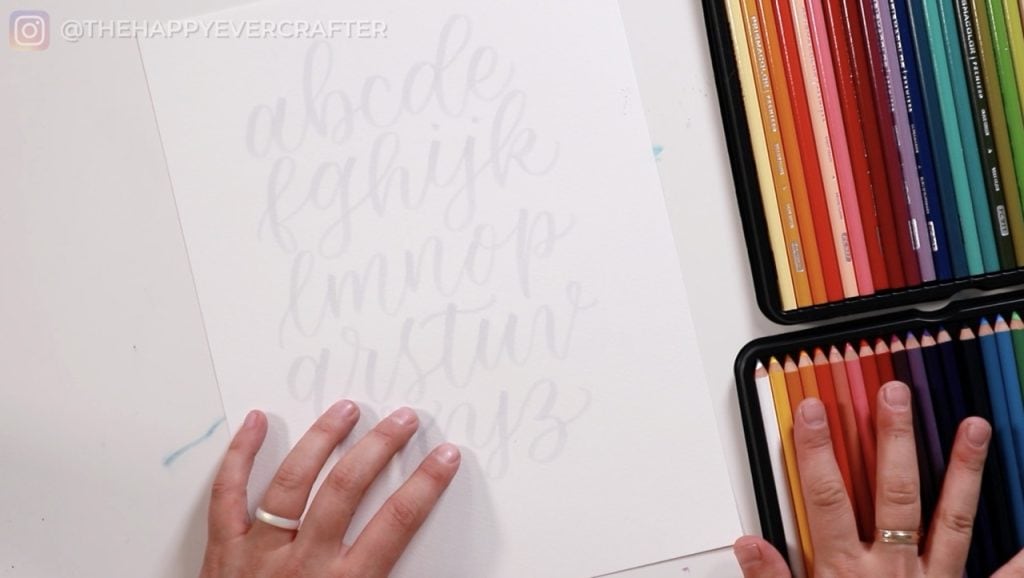 @THEHAPPYEVERCRAFTER
abcde
fghijk
lmnop
qrstuv
yz